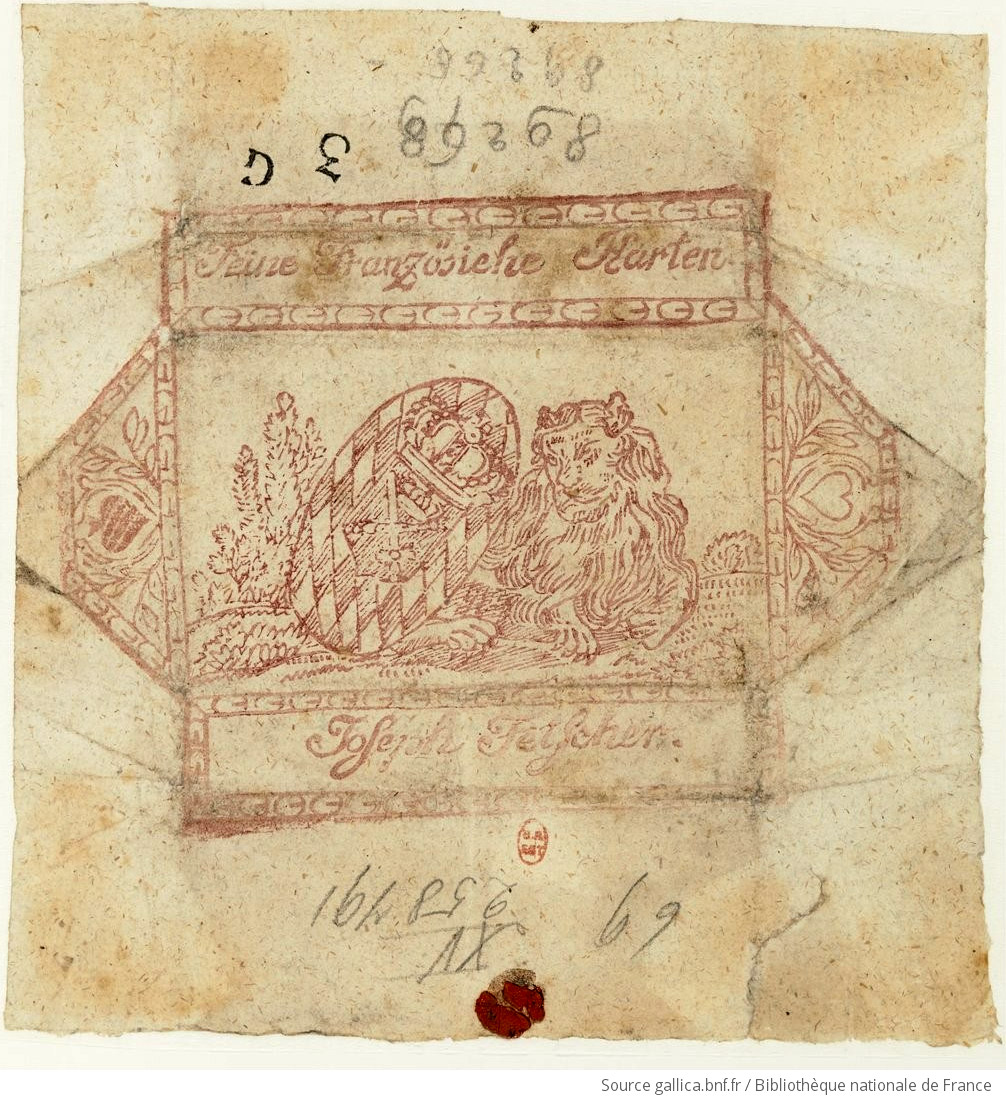 89268
89268
G 3
Feine Französiche Karten.
Joseph Fetscher.
69
Source gallica.bnf.fr / Bibliothèque nationale de France